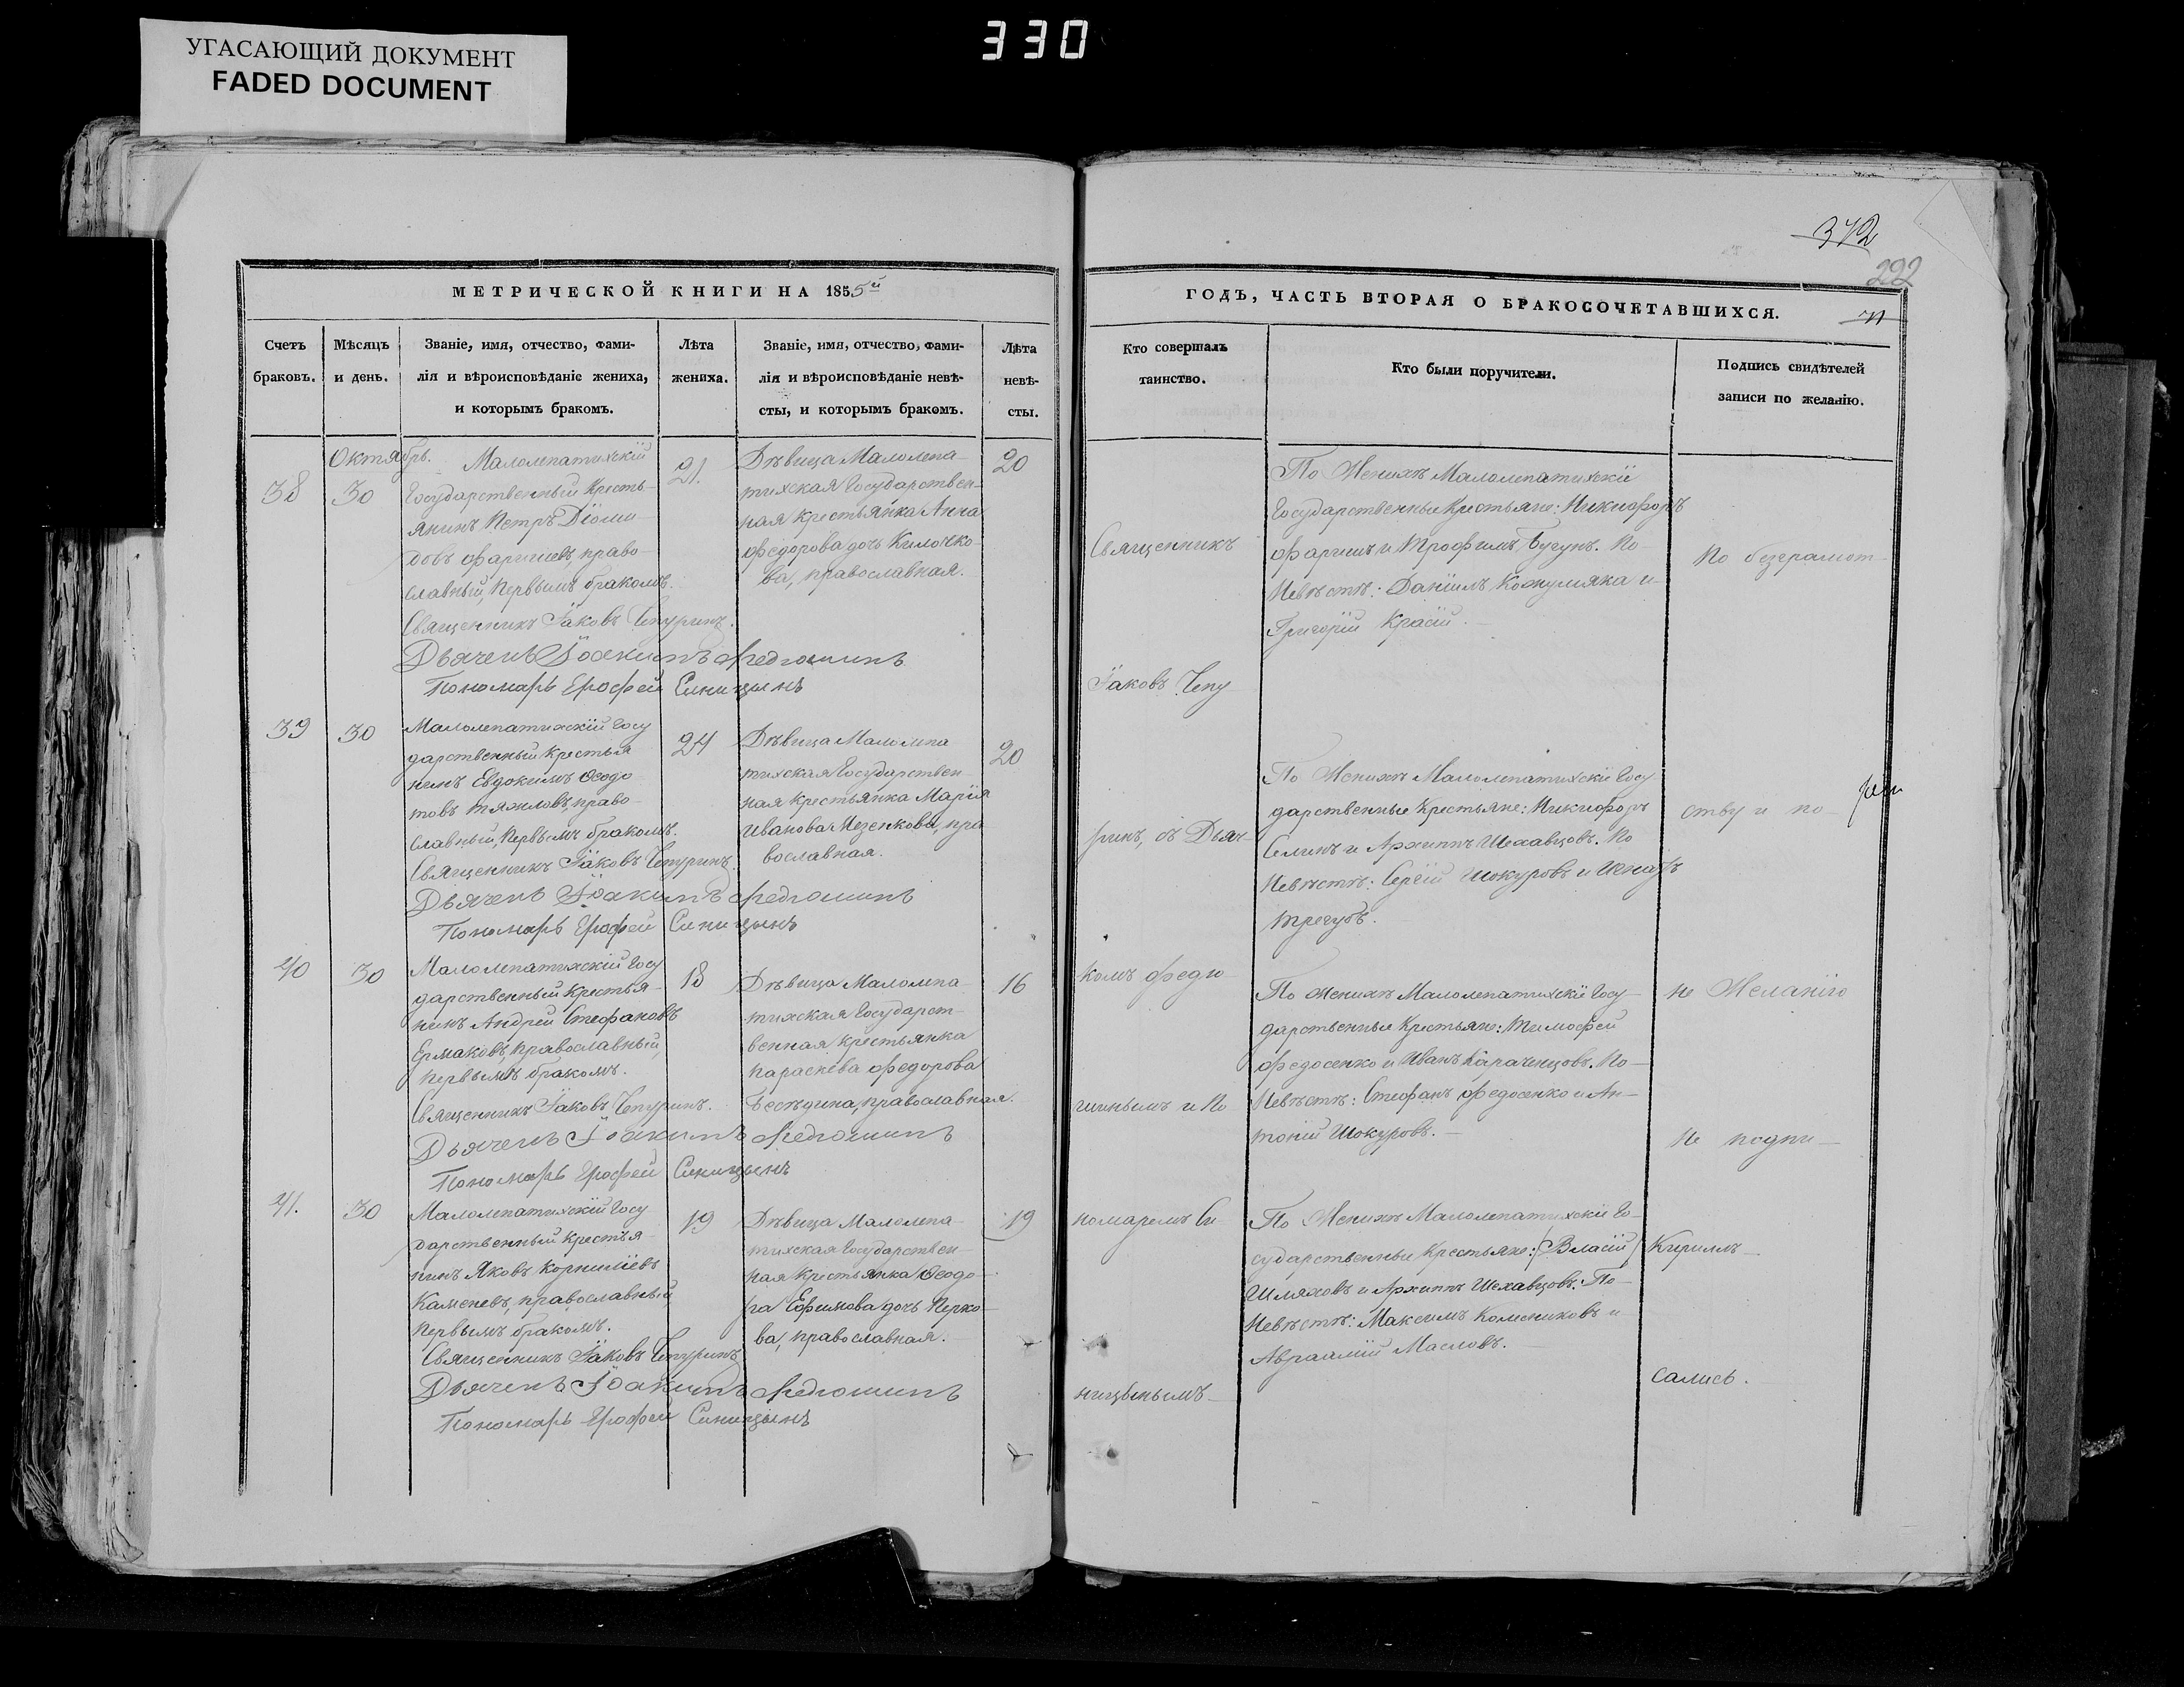 330
УГАСАЮЩИЙ ДОКУМЕНТ
FADED DOCUMENT
МЕТРИЧЕСКОЙ КНИГИ НА 1855й
Счетъ
браковъ.
Мѣсяцъ
и день.
Званіе, имя, отчество, фами-
лія и вѣроисповѣданіе жениха,
и которымъ бракомъ.
Лѣта
жениха.
Званіе, имя, отчество, фами-
лія и вѣроисповѣданіе невѣ-
сты, и которымъ бракомъ.
Лѣта
невѣ-
сты.
Октябрь.
38
30
Малолепатихскій
Государственный Кресть-
янинъ Петръ Діоми-
довъ Фаришевъ, право-
славный, Первымъ бракомъ.
Священникъ Іаковъ Чепуринъ.
Дьячекъ Іоакимъ Федюшинъ
Пономарь Ерофей Синицынъ
21.
Дѣвица Малолепа-
тихская Государствен-
ная Крестьянка Анна
Федорова дочь Килочко-
ва, православная.
20
39
30
Малолепатихскій Госу
дарственный Крестья
нинъ Евдокимъ Ѳеодо
товъ Тяжловъ, право-
славный, Первымъ бракомъ.
Священникъ Іаковъ Чепуринъ.
Дьячекъ Іоакимъ Федюшинъ
Пономарь Ерофей Синицынъ
24
Дѣвица Малолепа
тихская Государствен-
ная Крестьянка Марія
Иванова Мезенкова, пра
вославная.
20
40
30
Малолепатихскій Госу
дарственный Крестья-
нинъ Андрей Стефановъ
Ермаковъ, православный,
Первымъ бракомъ.
Священникъ Іаковъ Чепуринъ.
Дьячекъ Іоакимъ Федюшинъ
Пономарь Ерофей Синицынъ
18
Дѣвица Малолепа-
тихская Государст-
венная Крестьянка
Параскева Федорова
Бесѣдина, православная.
16
41.
30
Малолепатихскій Госу
дарственный Крестья-
нинъ Яковъ Корниліевъ
Каменевъ, православный,
Первымъ бракомъ.
Священникъ Іаковъ Чепуринъ
Дьячекъ Іоакимъ Федюшинъ
Пономарь Ерофей Синицынъ
19
Дѣвица Малолепа-
тихская Государствен-
ная Крестьянка Ѳеодо-
ра Ефимова дочь Перко-
ва, православная.
19
372
292
ГОДЪ, ЧАСТЬ ВТОРАЯ О БРАКОСОЧЕТАВШИХСЯ.
Кто совершалъ
таинство.
Кто были поручители.
Подпись свидѣтелей
записи по желанію.
Священникъ
Іаковъ Чепу
ринъ, съ Дьяч-
комъ Федю-
шинымъ и По
номаремъ Си-
ницынымъ
По Женихѣ Малолепатихскіе
Государственные Крестьяне: Никифоръ
Фаришъ и Трофимъ Бугунъ. По-
Невѣстѣ: Даніилъ Кожумяка и
Григорій Красій.
По Женихѣ Малолепатихскіе Госу
дарственные Крестьяне: Никифоръ
Селинъ и Архиппъ Шехавцовъ. По
Невѣстѣ: Сергій Шокуровъ и Игнатъ
Трегубъ.
По Женихѣ Малолепатихскіе Госу-
дарственные Крестьяне: Тимофей
Федосенко и Иванъ Карачинцовъ. По-
Невѣстѣ: Стефанъ Федосенко и Ан-
тоній Шокуровъ.
По Женихѣ Малолепатихскіе Го-
сударственные Крестьяне: Власій
Шляховъ и Архиппъ Шехавцовъ. По-
Невѣстѣ: Максимъ Колесниковъ и
Авраамій Масловъ.
По безграмот-
ству и по-
не Желанію
не подпи-
Кириллъ
сались.